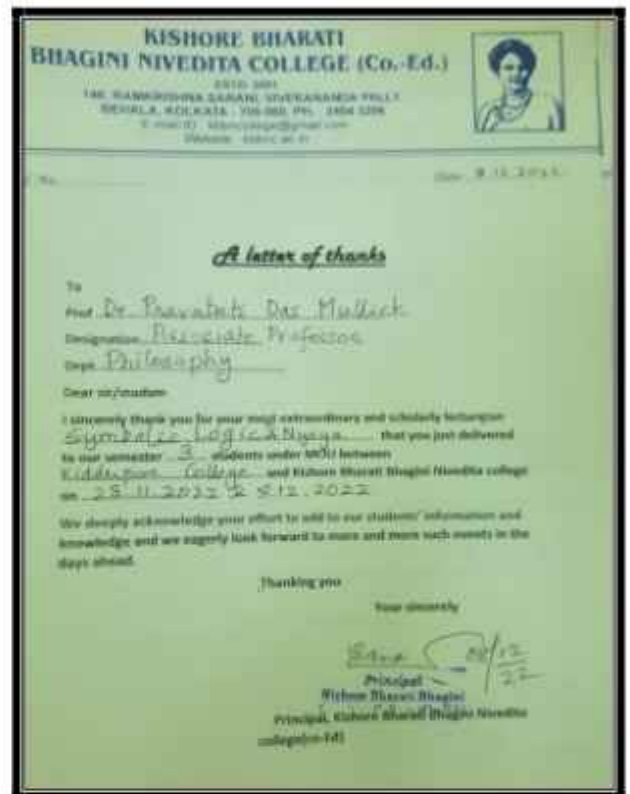 KISHORE BHARATI
BHAGINI NIVEDITA COLLEGE (Co.-Ed.)
148, RAMKRISHNA SARANI, VIVEKANANDA PALLY
BEHALA, KOLKATA - 700 060, PH.
Website
Date 8.12.2022
A letter of thanks
To
Prof Dr. Das Mullick
Designation Associate Professor
Dept. Philosophy
Dear sir/madam
I sincerely thank you for your most extraordinary and scholarly lecture on
Symbolic Logic & Nyaya that you just delivered
to our semester 3 students under MOU between
Kidderpore College and Kishore Bharati Bhagini Nivedita college
on 25.11.2022 & 5.12.2022
We deeply acknowledge your effort to add to our students' information and
knowledge and we eagerly look forward to more and more such events in the
days ahead.
Thanking you
Your sincerely
08/12/22
Principal
Kishore Bharati Bhagini
Principal, Kishore Bharati Bhagini Nivedita
college(co-Ed)